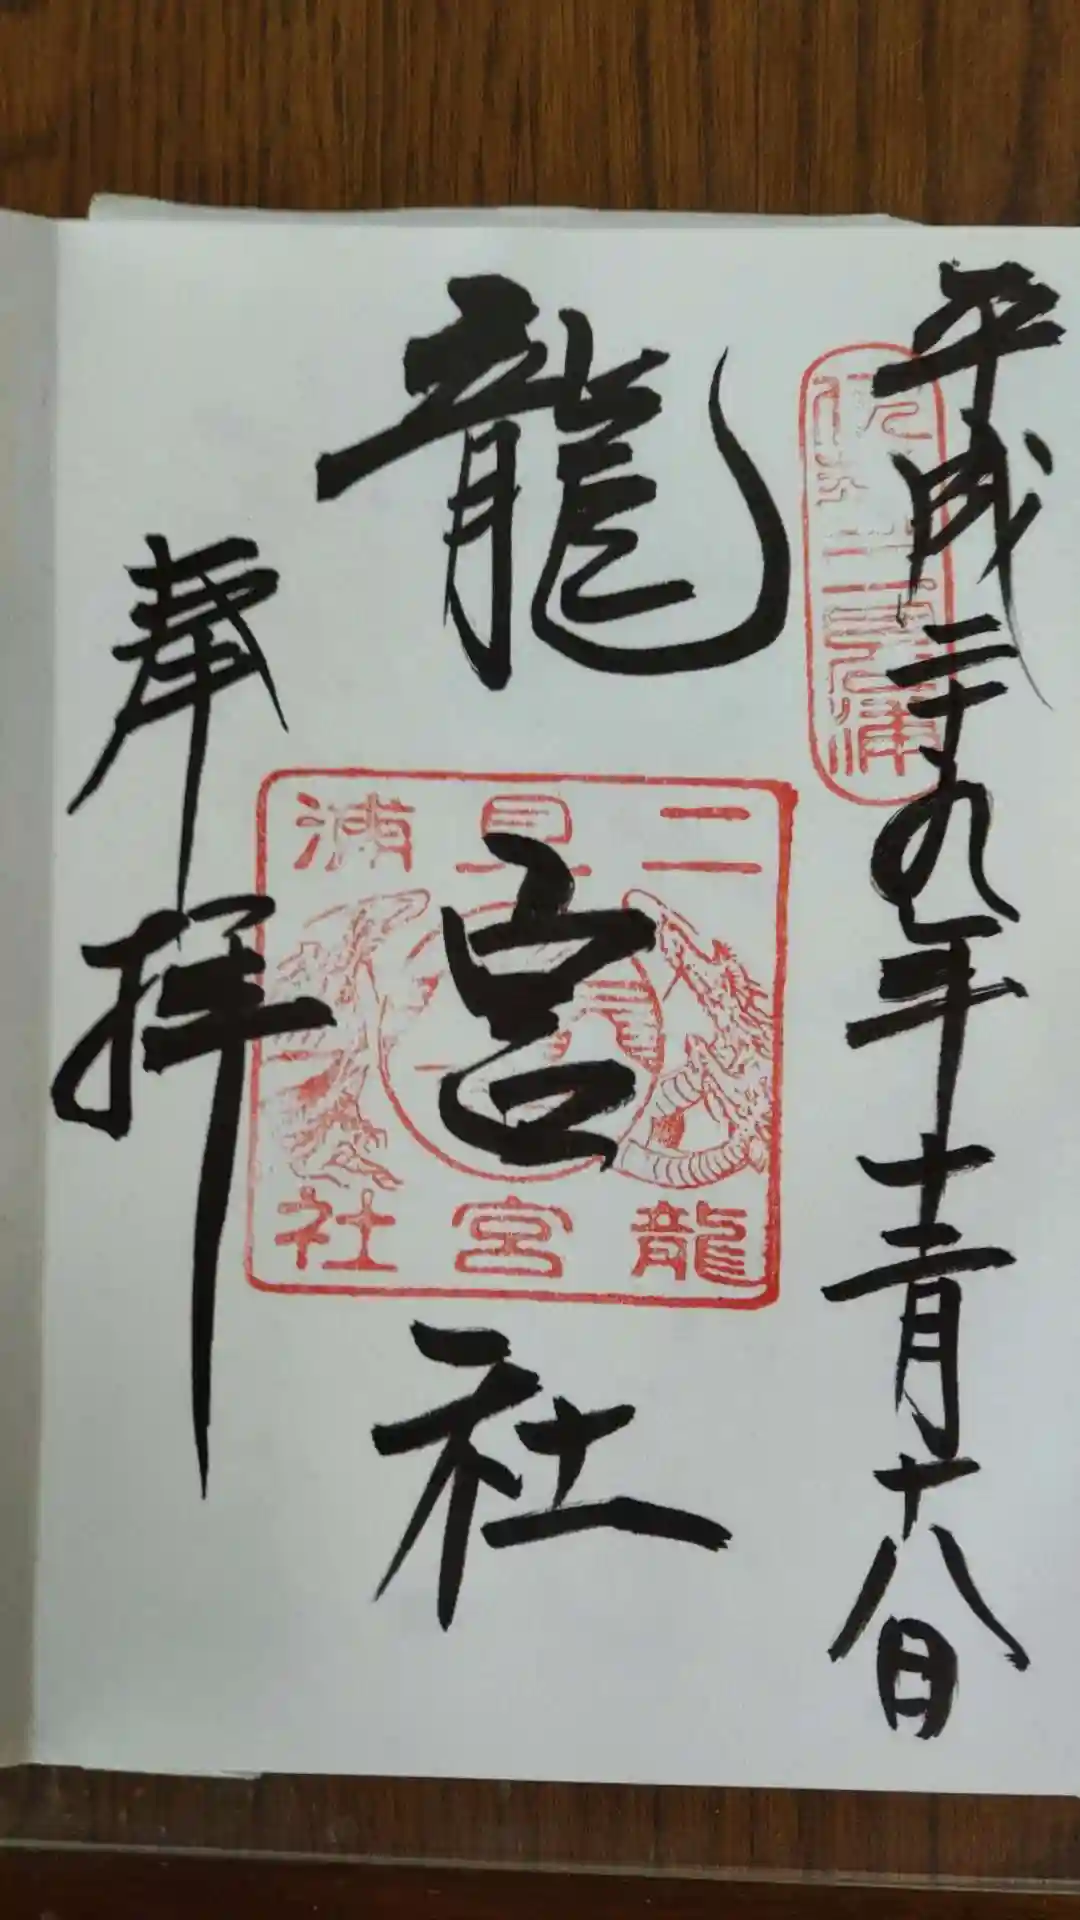 平成二十九年十二月十八日
二見浦
龍宮社
二見浦
龍宮社
奉拝